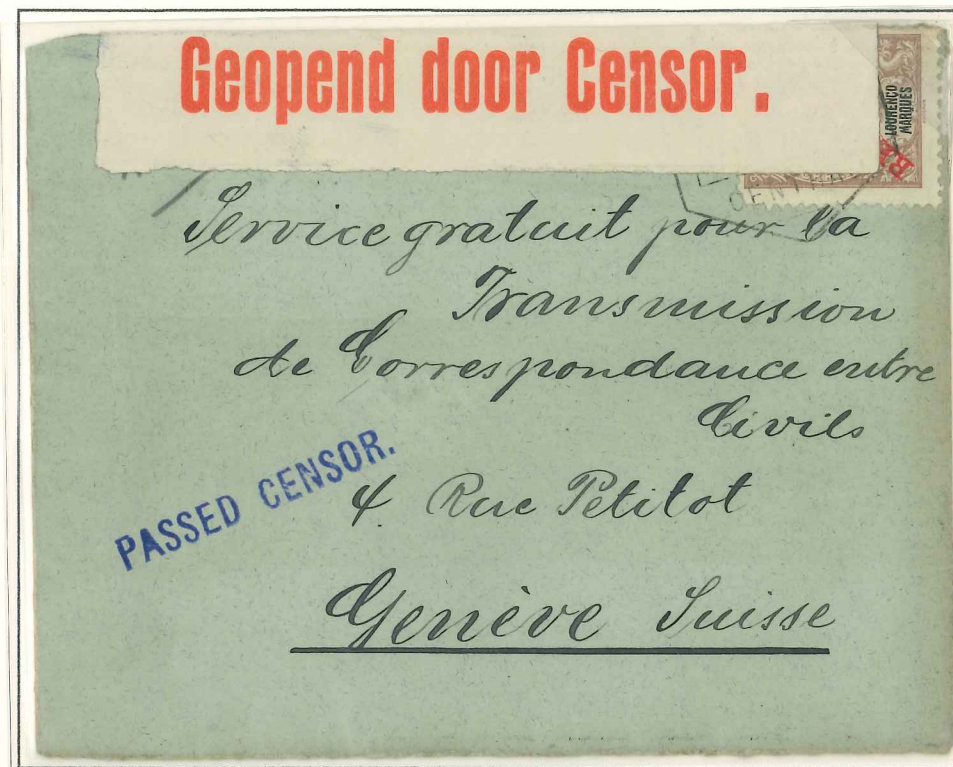 Geopend door Censor.
LOURENCO
MARQUES
Service gratuit pour la
Transmission
de Correspondance entre
Civils
4 Rue Petitot
Genève Suisse
PASSED CENSOR.